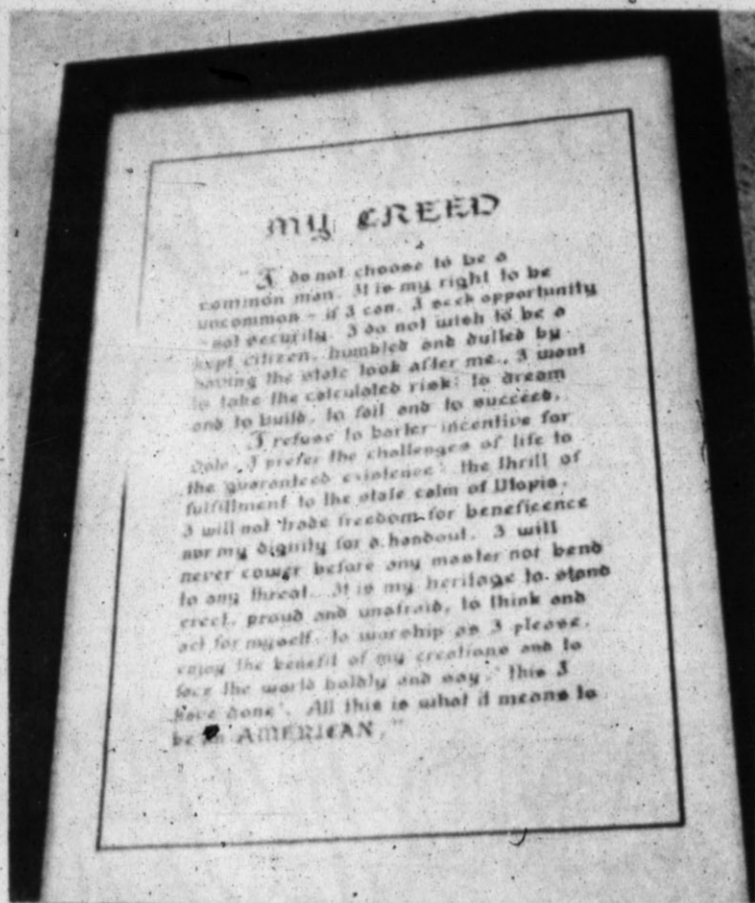 MY CREED
"I do not choose to be a
common man. It is my right to be
uncommon - if I can. I seek opportunity
- not security. I do not wish to be a
kept citizen, humbled and dulled by
having the state look after me. I want
to take the calculated risk: to dream
and to build, to fail and to succeed.
I refuse to barter incentive for
dole. I prefer the challenges of life to
the guaranteed existence: the thrill of
fulfillment to the stale calm of Utopia.
I will not trade freedom for beneficence
nor my dignity for a handout. I will
never cower before any master not bend
to any threat. It is my heritage to stand
erect, proud and unafraid, to think and
act for myself, to worship as I please,
enjoy the benefit of my creations and to
face the world boldly and say, "this I
have done". All this is what it means to
be an AMERICAN."